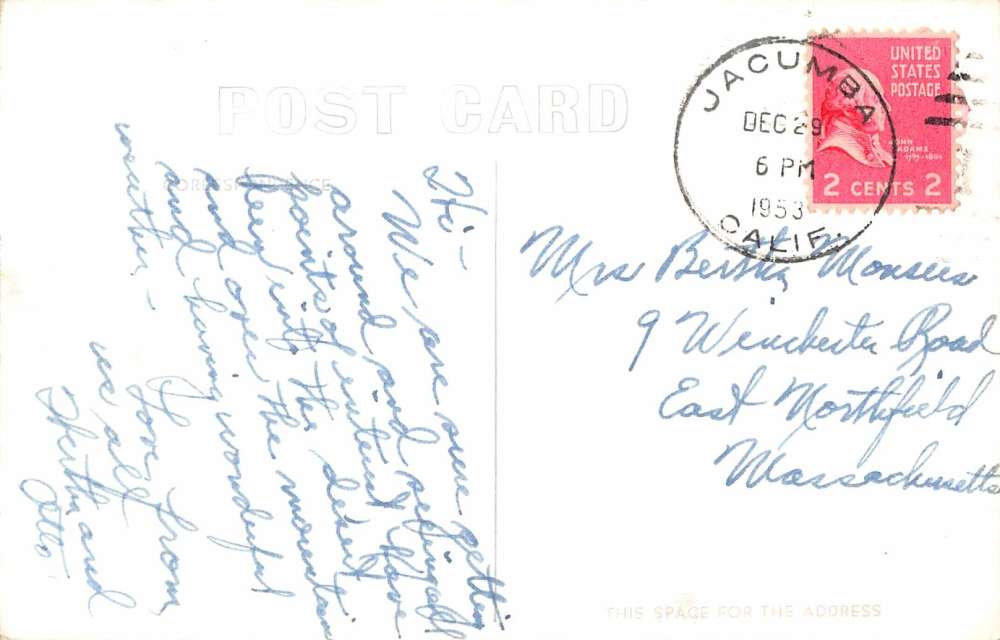 POST CARD
CORRESPONDENCE
Hi -
We are sure getting
around and seeing all
points of interest. Have
been into the desert
and over the mountain
and having wonderful
weather -
Love from
we all
Bertha and
Otto
JACUMBA
DEC 29
6 PM
1953
CALIF.
UNITED
STATES
POSTAGE
JOHN
ADAMS
2 CENTS 2
Mrs Bertha Monsees
9 Winchester Road
East Northfield
Massachusetts
THIS SPACE FOR THE ADDRESS